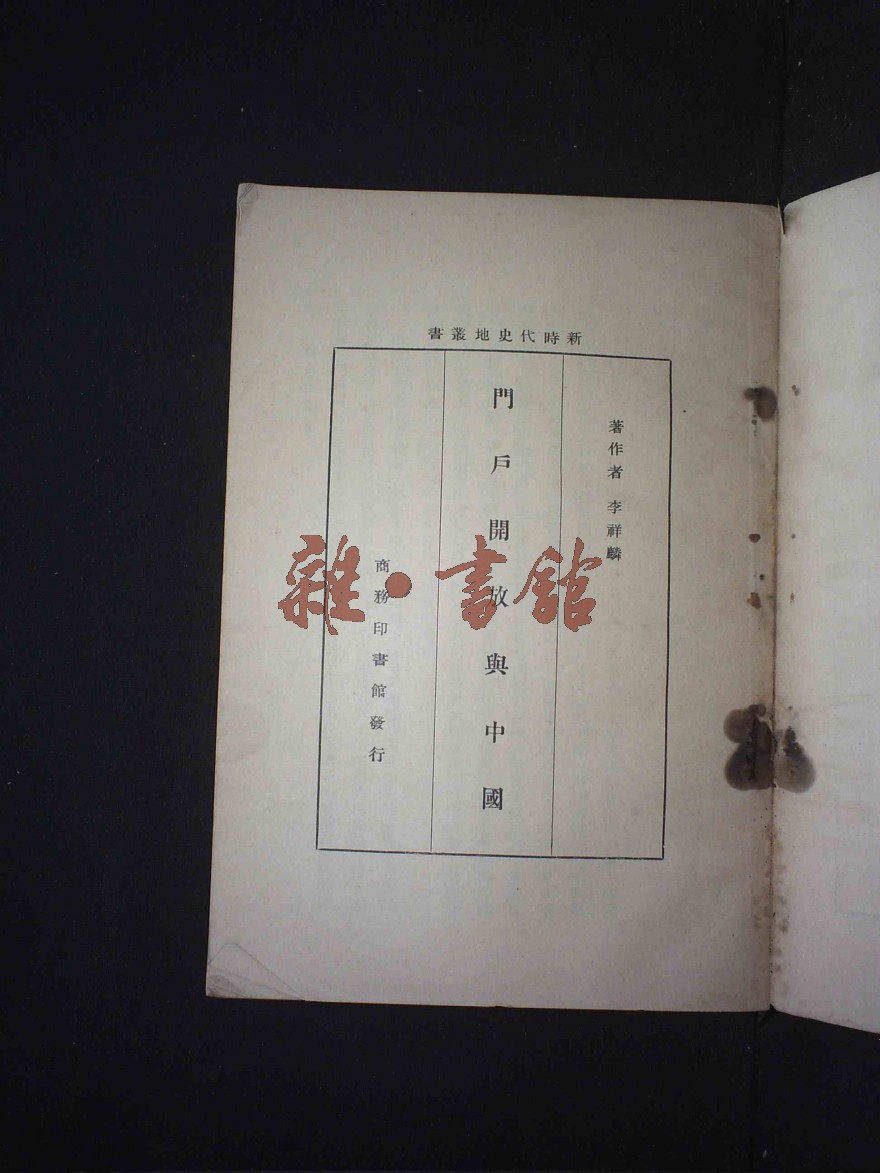 新時代史地叢書
著作者 李祥麟
門戶開放與中國
商務印書館發行
雜·書館